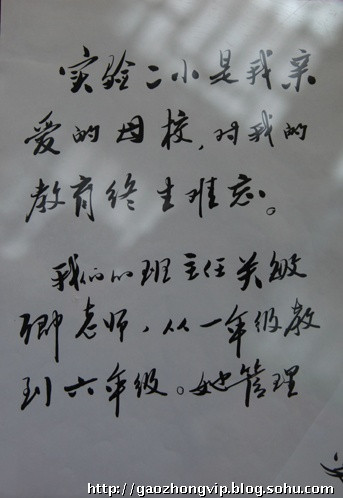 实验二小是我亲
爱的母校,对我的
教育终生难忘。
我们的班主任关敏
卿老师,从一年级教
到六年级。她管理
http://gaozhongvip.blog.sohu.com